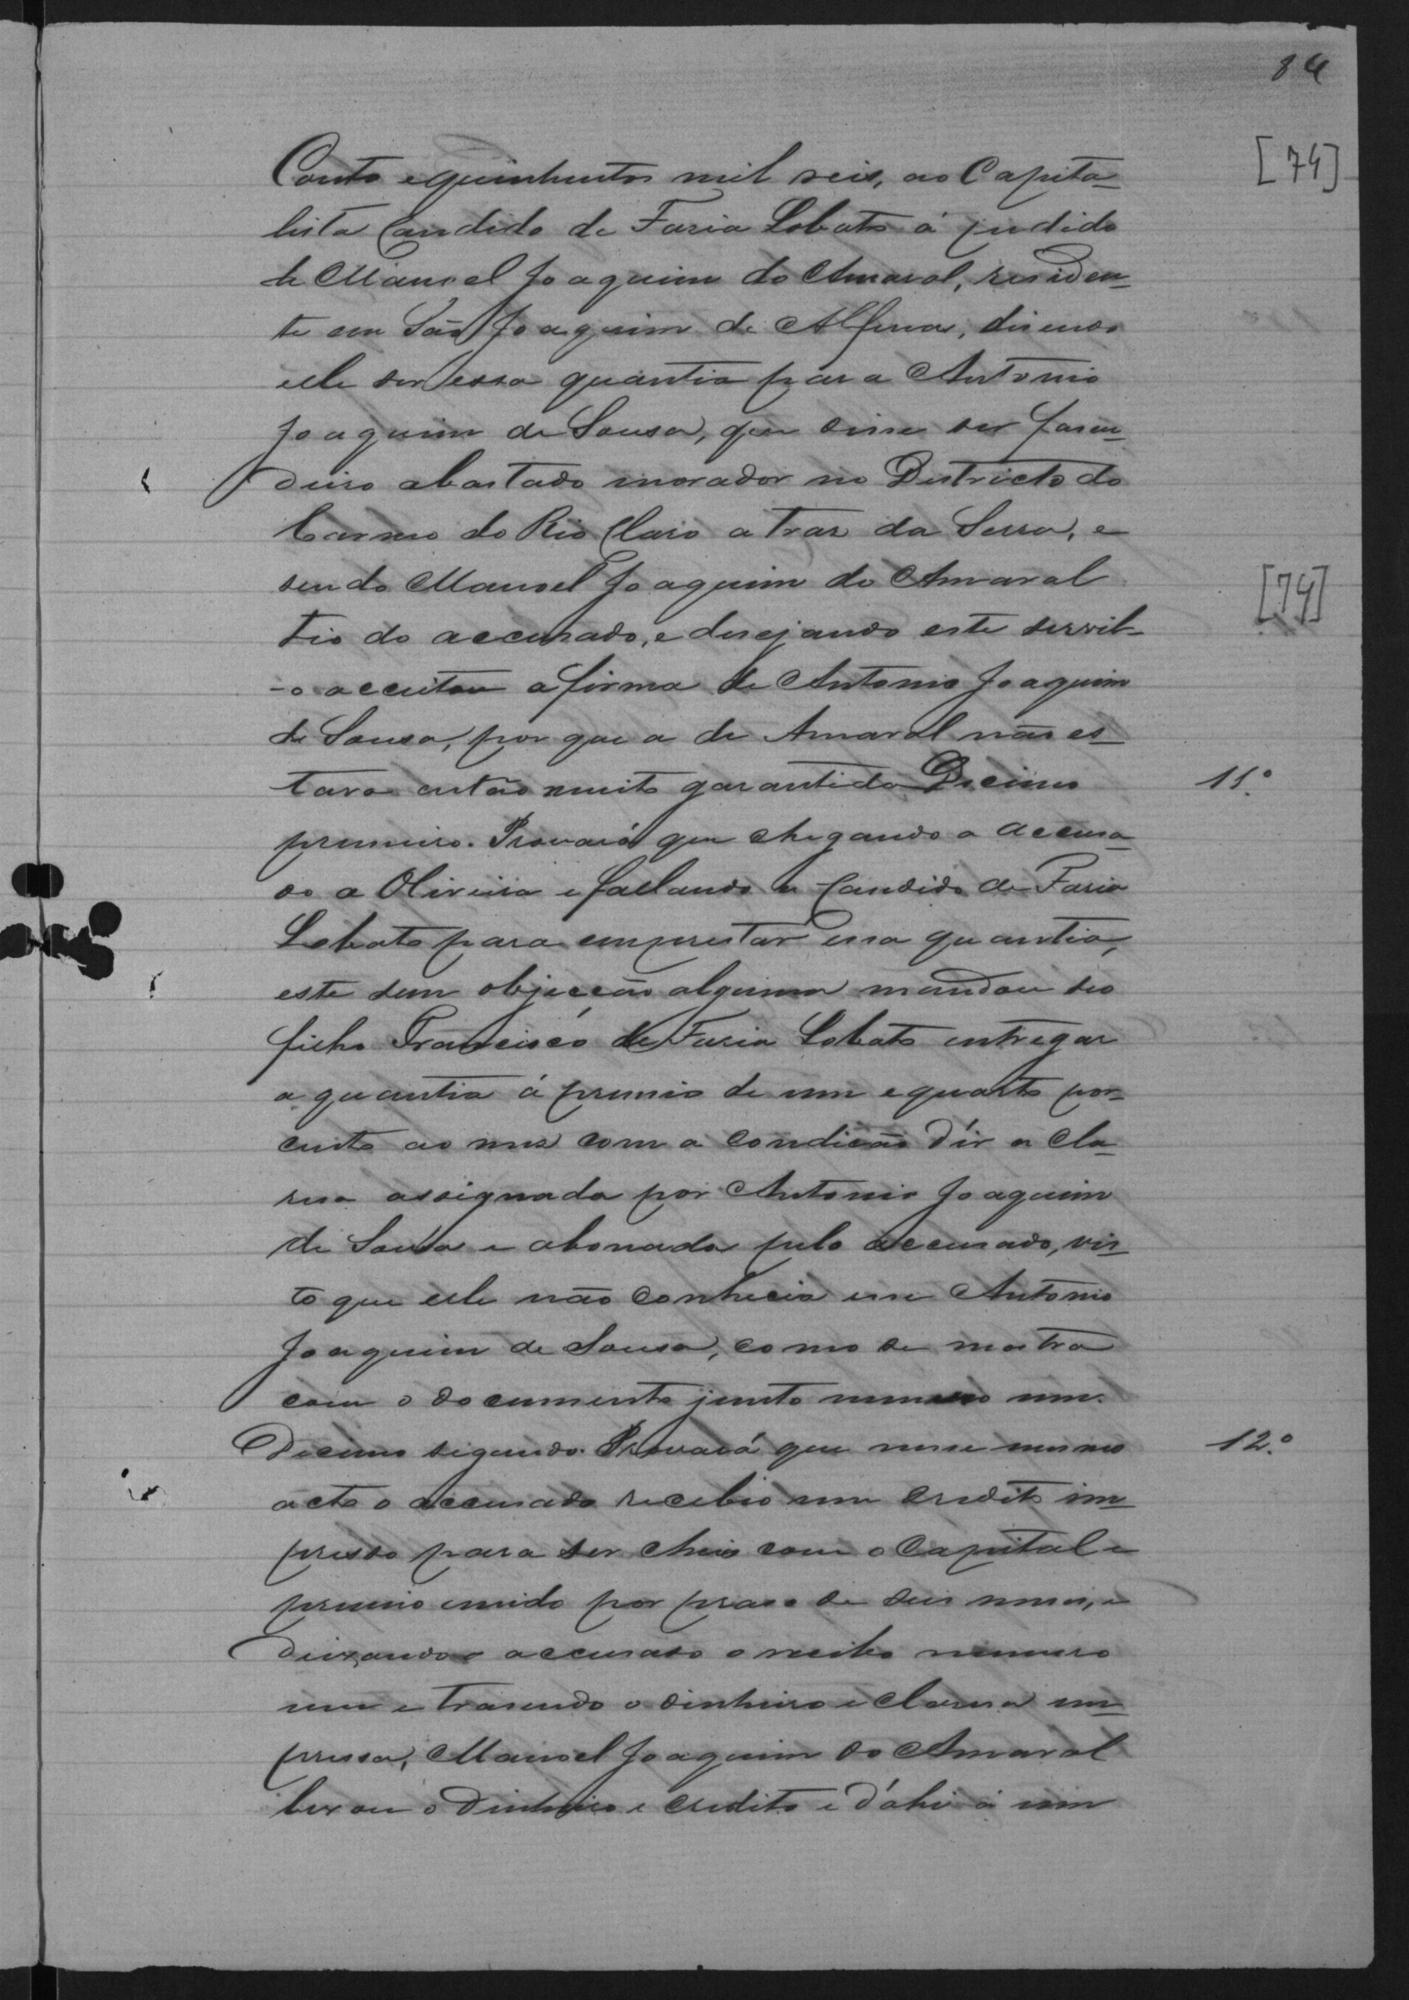 84
[74]
Conto e quinhentos mil reis, ao Capita-
lista Candido de Faria Lobato á pedido
de Manoel Joaquim do Amaral, residen-
te em São Joaquim de Alfenas, disendo
elle ser essa quantia para Antonio
Joaquim de Sousa, que disse ser fasen-
deiro abastado morador no Districto do
Carmo do Rio Claro a tras da Serra, e
sendo Manoel Joaquim do Amaral
[74]
tio do accusado, e desejando este servil-
-o acceitou a firma de Antonio Joaquim
de Sousa, por que a de Amaral não es-
tava então muito garantida Decimo
11.º
primeiro. Provará que chegando o accusa-
do a Oliveira e fallando a Candido de Faria
Lobato para emprestar essa quantia,
este sem objecção alguma mandou seo
filho Francisco de Faria Lobato entregar
a quantia á premio de um e quarto por
cento ao mes com a condicão d'ir a cla-
resa assignada por Antonio Joaquim
de Sousa e abonada pelo accusado, vis-
to que elle não conhecia esse Antonio
Joaquim de Sousa, como se mostra
com o documento junto numero um.
Decimo segundo. Provará que nesse mesmo
12.º
acto o accusado recebio um credito im-
presso para ser cheio com o Capital e
premio unido por praso de seis meses, e
deixando o accusado o recibo numero
um e trasendo o dinheiro e claresa im-
pressa, Manoel Joaquim do Amaral
levou o dinheiro e credito e d'ahi á um